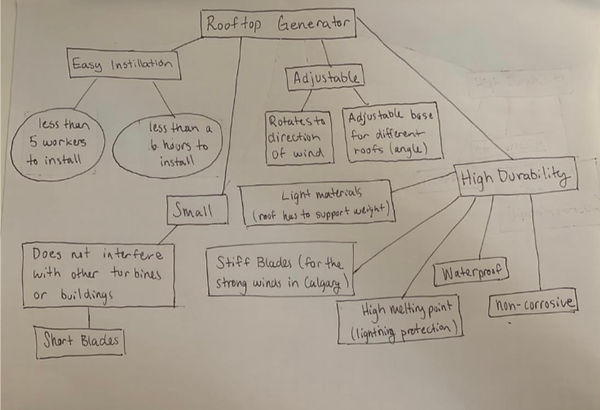 Rooftop Generator
Easy Instillation
Adjustable
less than
5 workers
to install
less than a
6 hours to
install
Rotates to
direction
of wind
Adjustable base
for different
roofs (angle)
High Durability
Small
Light materials
(roof has to support weight)
Does not interfere
with other turbines
or buildings
Stiff Blades (for the
strong winds in Calgary)
Waterproof
High melting point
(lightning protection)
non-corrosive
Short Blades